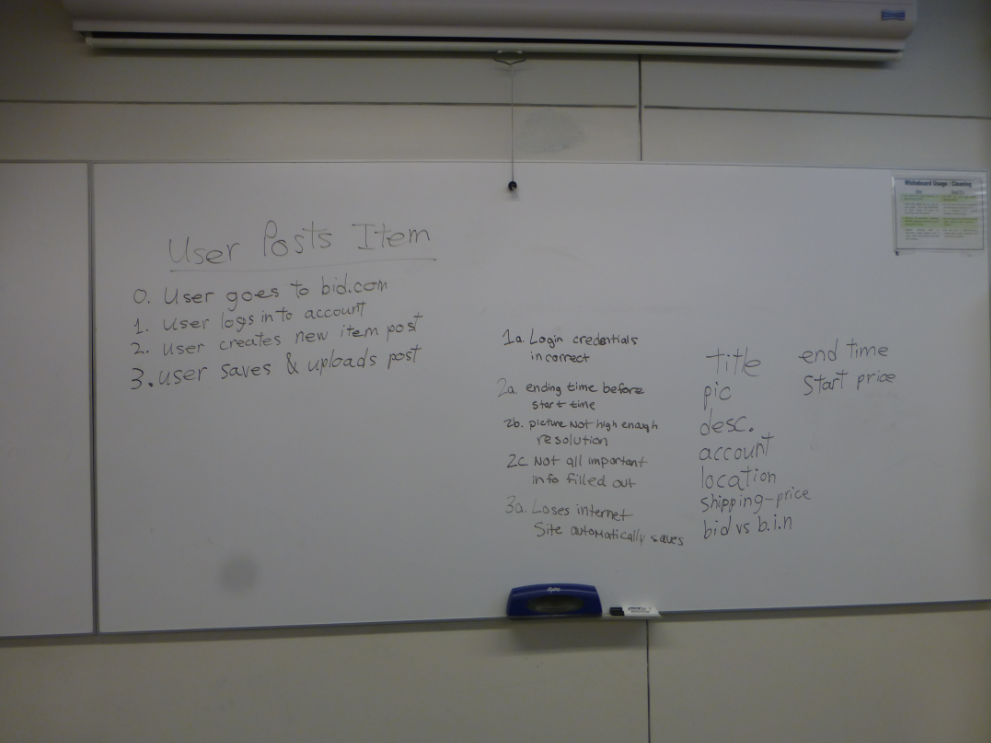 Whiteboard Usage / Cleaning
User Posts Item
0. User goes to bid.com
1. User logs into account
2. User creates new item post
3. User saves & uploads post
1a. Login credentials
incorrect
2a. ending time before
start time
2b. picture Not high enough
resolution
2c Not all important
info filled out
3a. Loses internet
Site automatically saves
title
pic
desc.
account
location
shipping-price
bid vs b.i.n
end time
Start price